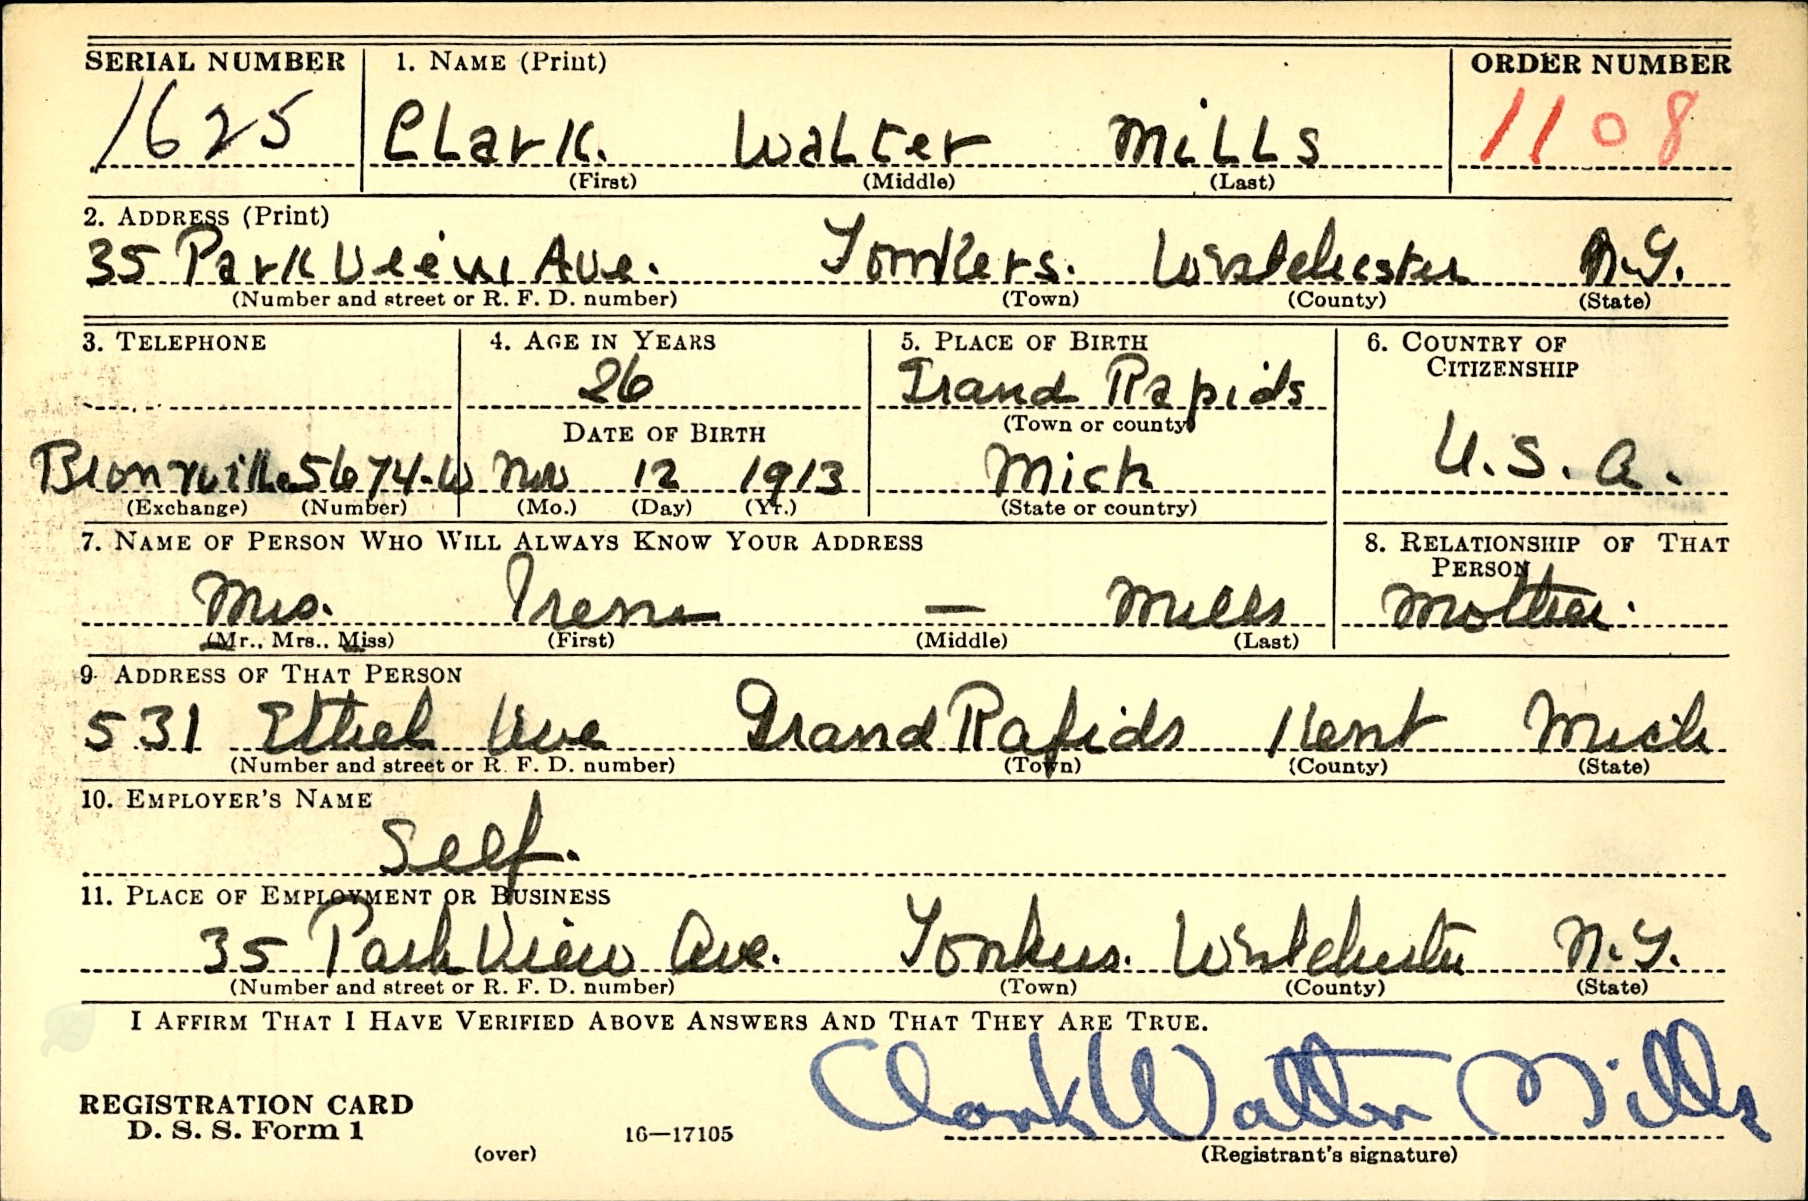 SERIAL NUMBER 1. NAME (Print) ORDER NUMBER
1625 Clark. Walter Mills 1108
(First) (Middle) (Last)
2. ADDRESS (Print)
35 Park View Ave. Yonkers. Westchester N.Y.
(Number and street or R. F. D. number) (Town) (County) (State)
3. TELEPHONE 4. AGE IN YEARS 5. PLACE OF BIRTH 6. COUNTRY OF
CITIZENSHIP
26 Grand Rapids
(Town or county)
DATE OF BIRTH
U.S.A.
Bronxville 5674-W Nov 12 1913 Mich
(Exchange) (Number) (Mo.) (Day) (Yr.) (State or country)
7. NAME OF PERSON WHO WILL ALWAYS KNOW YOUR ADDRESS 8. RELATIONSHIP OF THAT
PERSON
Mrs. Irene — Mills Mother.
(Mr., Mrs., Miss) (First) (Middle) (Last)
9. ADDRESS OF THAT PERSON
531 Ethel Ave Grand Rapids Kent Mich
(Number and street or R. F. D. number) (Town) (County) (State)
10. EMPLOYER'S NAME
Self.
11. PLACE OF EMPLOYMENT OR BUSINESS
35 Park View Ave. Yonkers. Westchester N.Y.
(Number and street or R. F. D. number) (Town) (County) (State)
I AFFIRM THAT I HAVE VERIFIED ABOVE ANSWERS AND THAT THEY ARE TRUE.
Clark Walter Mills
REGISTRATION CARD
D. S. S. Form 1 16—17105
(over) (Registrant's signature)